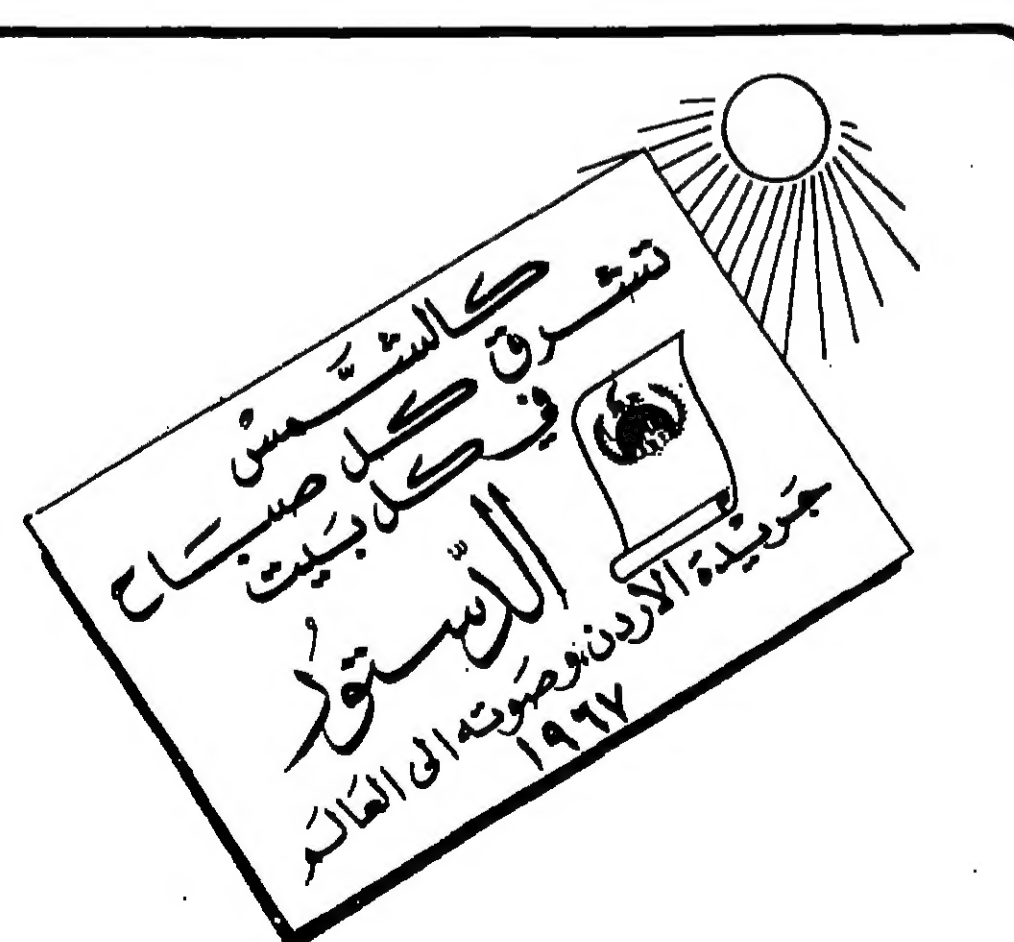 كالشَّمسْ
تشرق كل صبَاح
في كل بَيت
الدّستورُ
جَريْدة الأردن، وصَوته الى العَالَم
١٩٦٧